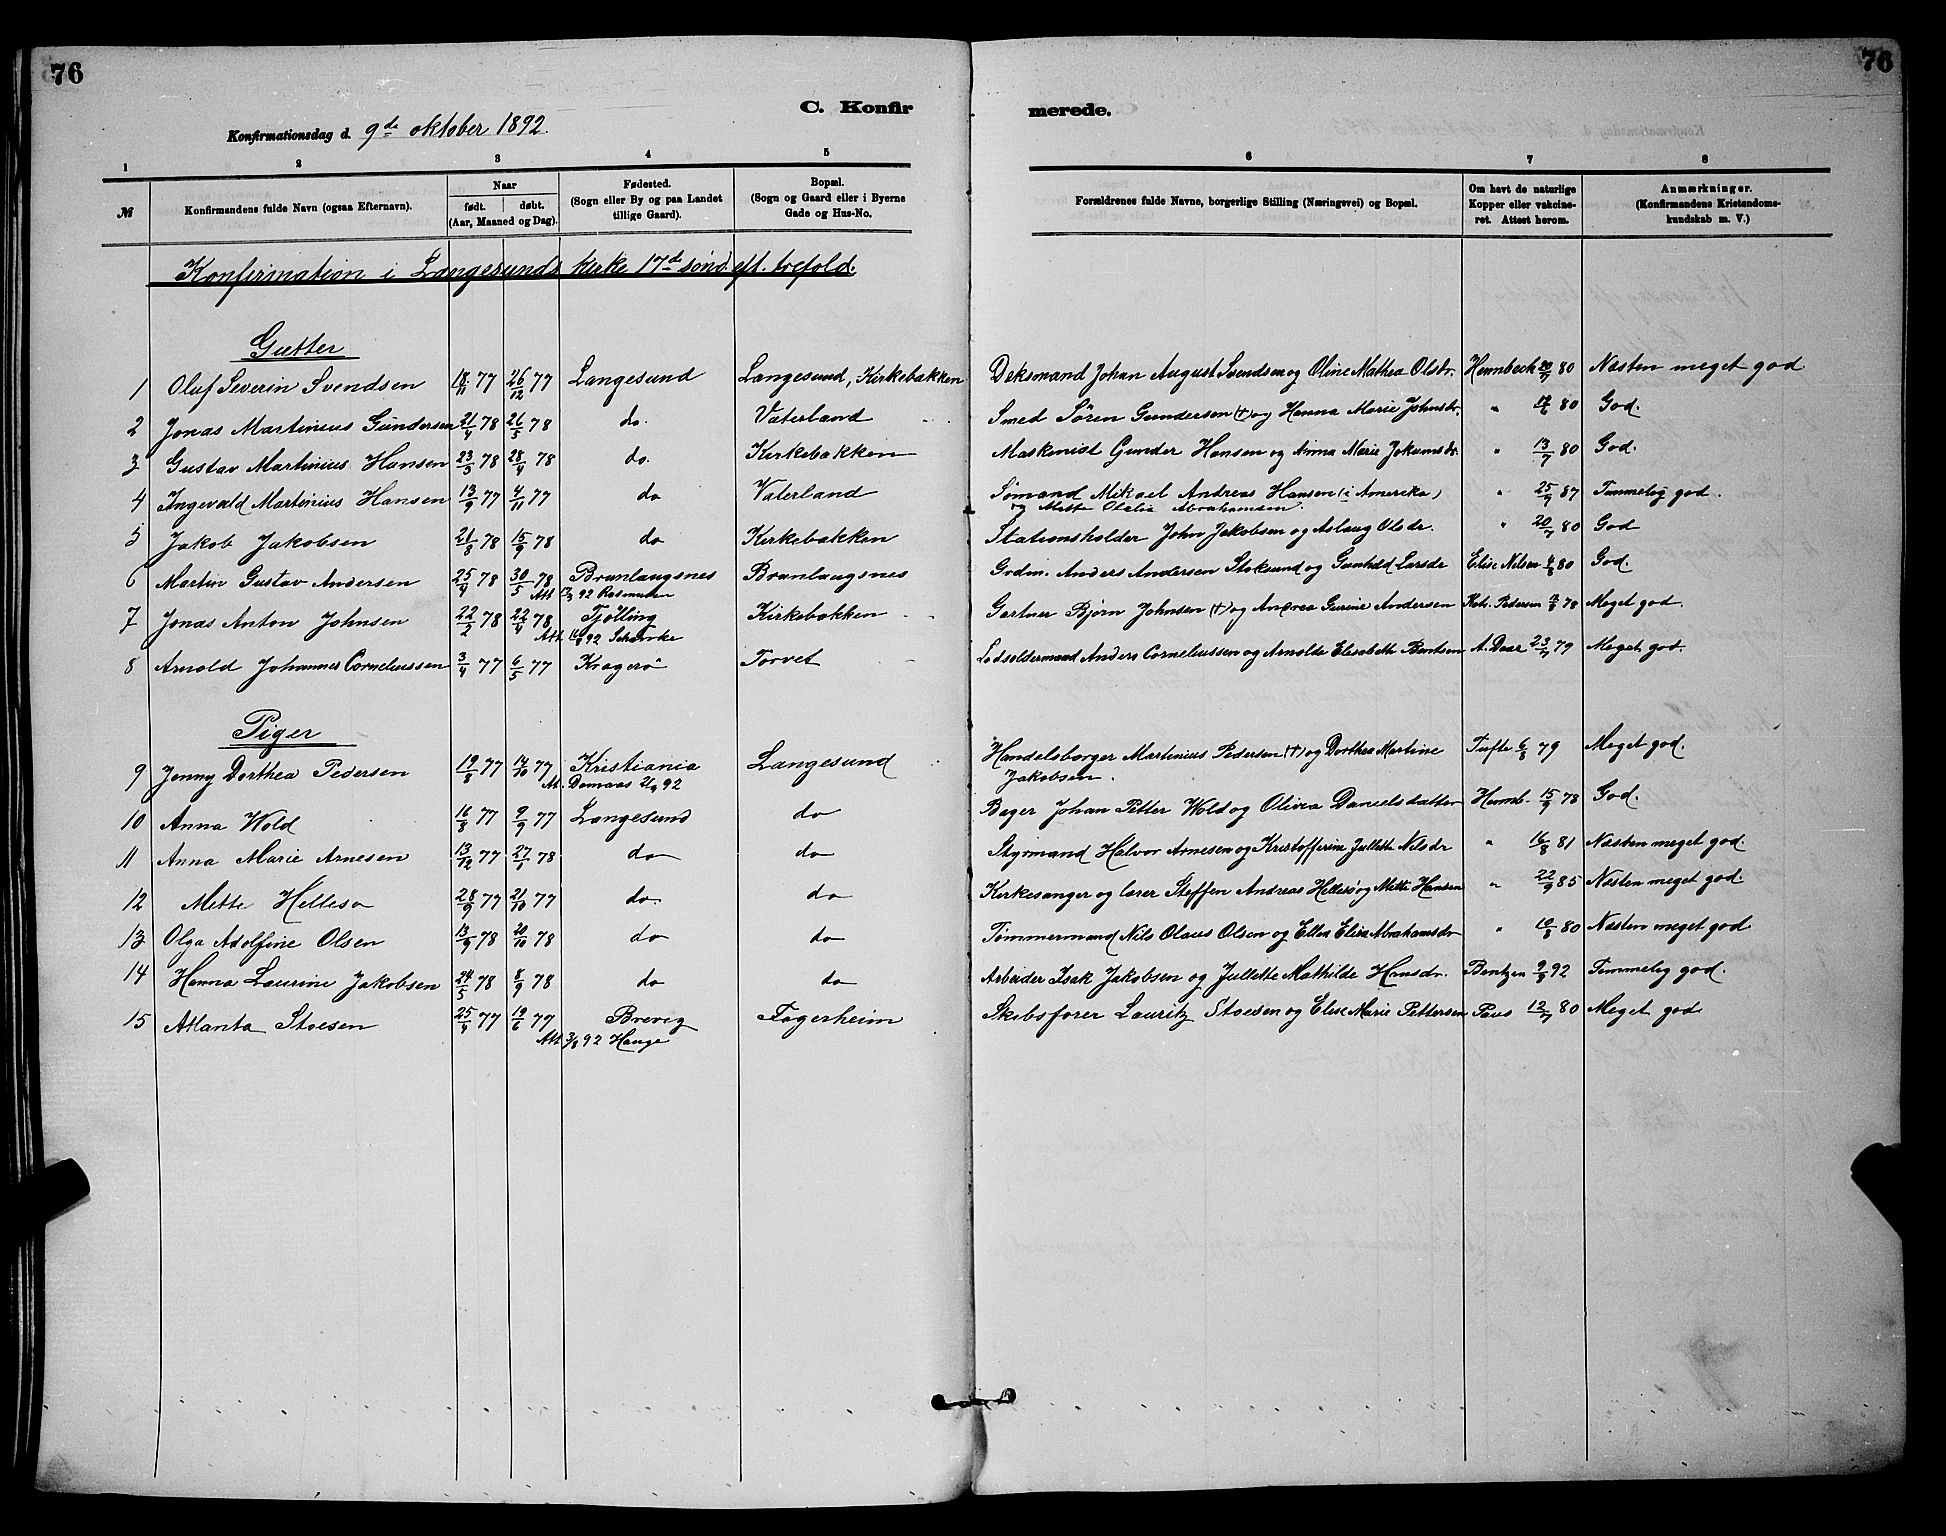 76
76
C. Konfir
merede.
Konfirmationsdag d. 9de oktober 1892.
1 2 3 4 5 6 7 8
№ Konfirmandens fulde Navn (ogsaa Efternavn). Naar født. døbt. (Aar, Maaned og Dag). Fødested. (Sogn eller By og paa Landet tillige Gaard). Bopæl. (Sogn og Gaard eller i Byerne Gade og Hus-No. Forældrenes fulde Navne, borgerlige Stilling (Næringsvei) og Bopæl. Om havt de naturlige Kopper eller vakcineret. Attest herom. Anmærkninger. (Konfirmandens Kristendomskundskab m. V.)
Konfirmation i Langesunds kirke 17de sønd. eft. trefold.
Gutter
1 Oluf Severin Svendsen 18/11 77 26/12 77 Langesund Langesund, Kirkebakken Deksmand Johan August Svendsen og Oline Mathea Olsdr. Hennbech 80 Næsten meget god
2 Jonas Martinius Gundersen 21/4 78 26/5 78 do. Vaterland Smed Sören Gundersen (+) og Hanna Marie Johnsdr. " 80 God.
3 Gustav Martinius Hansen 23/3 78 28/4 78 do. Kirkebakken Maskenist Gunder Hansen og Anna Marie Jokumsdr. " 13/7 80 God.
4 Ingevald Martinius Hansen 13/9 77 4/11 77 do Vaterland Sömand Mikael Andreas Hansen (i Amerika)
og Mette Olelia Abrahamsen. " 25/9 87 Temmelig god.
5 Jakob Jakobsen 21/8 78 15/9 78 do Kirkebakken Stationsholder John Jakobsen og Aslaug Olsdr. " 20/7 80 God
6 Martin Gustav Andersen 25/4 78 30/5 78 Brunlaugsnes Brunlaugsnes Grdm. Anders Andersen Stoksund og Gunhild Larsdr Elise Nilsen 80 God.
Att. 92 Rasmussen
7 Jonas Anton Johnsen 22/2 78 22/4 78 Tjölling Kirkebakken Gartner Bjørn Johnsen (+) og Andrea Gurine Andersen Kat. Pedersen 78 Meget god.
Att. 92 Schanke
8 Arnold Johannes Corneliussen 3/4 77 6/5 77 Kragerö Torvet Lodsoldermand Anders Corneliussen og Arnolde Elisabeth Bentsen A. Daae 23/7 79 Meget god.
Piger
9 Jenny Dorthea Pedersen 19/8 77 14/10 77 Kristiania Langesund Handelsborger Martinius Pedersen (+) og Dorthea Martine
Jakobsen. Tufte 6/8 79 Meget god.
At. Domaas 2/9 92
10 Anna Wold 16/8 77 9/9 77 Langesund do Bager Johan Petter Wold og Olivia Danielsdatter Hennb. 15/9 78 God.
11 Anna Marie Arnesen 13/12 77 27/1 78 do do Styrmand Halvor Arnesen og Kristofferine Jullette Nilsdr " 16/8 81 Næsten meget god.
12 Mette Hellesø 28/9 77 21/10 77 do. do Kirkesanger og lærer Steffen Andreas Hellesö og Mette Hansen " 22/9 85 Næsten meget god
13 Olga Adolfine Olsen 13/9 78 20/10 78 do do Tömmermand Nils Olaus Olsen og Ellen Elise Abrahamsdr " 10/8 80 Næsten meget god
14 Hanna Laurine Jakobsen 24/5 78 8/9 78 do do Arbeider Isak Jakobsen og Jullette Mathilde Hansdr. Bentzen 9/8 92 Temmelig god.
15 Atlanta Stoesen 25/4 77 19/6 77 Brevig Fagerheim Skibsfører Lauritz Stoesen og Elise Marie Pettersen Paus 12/7 80 Meget god
Att 92 Hauge